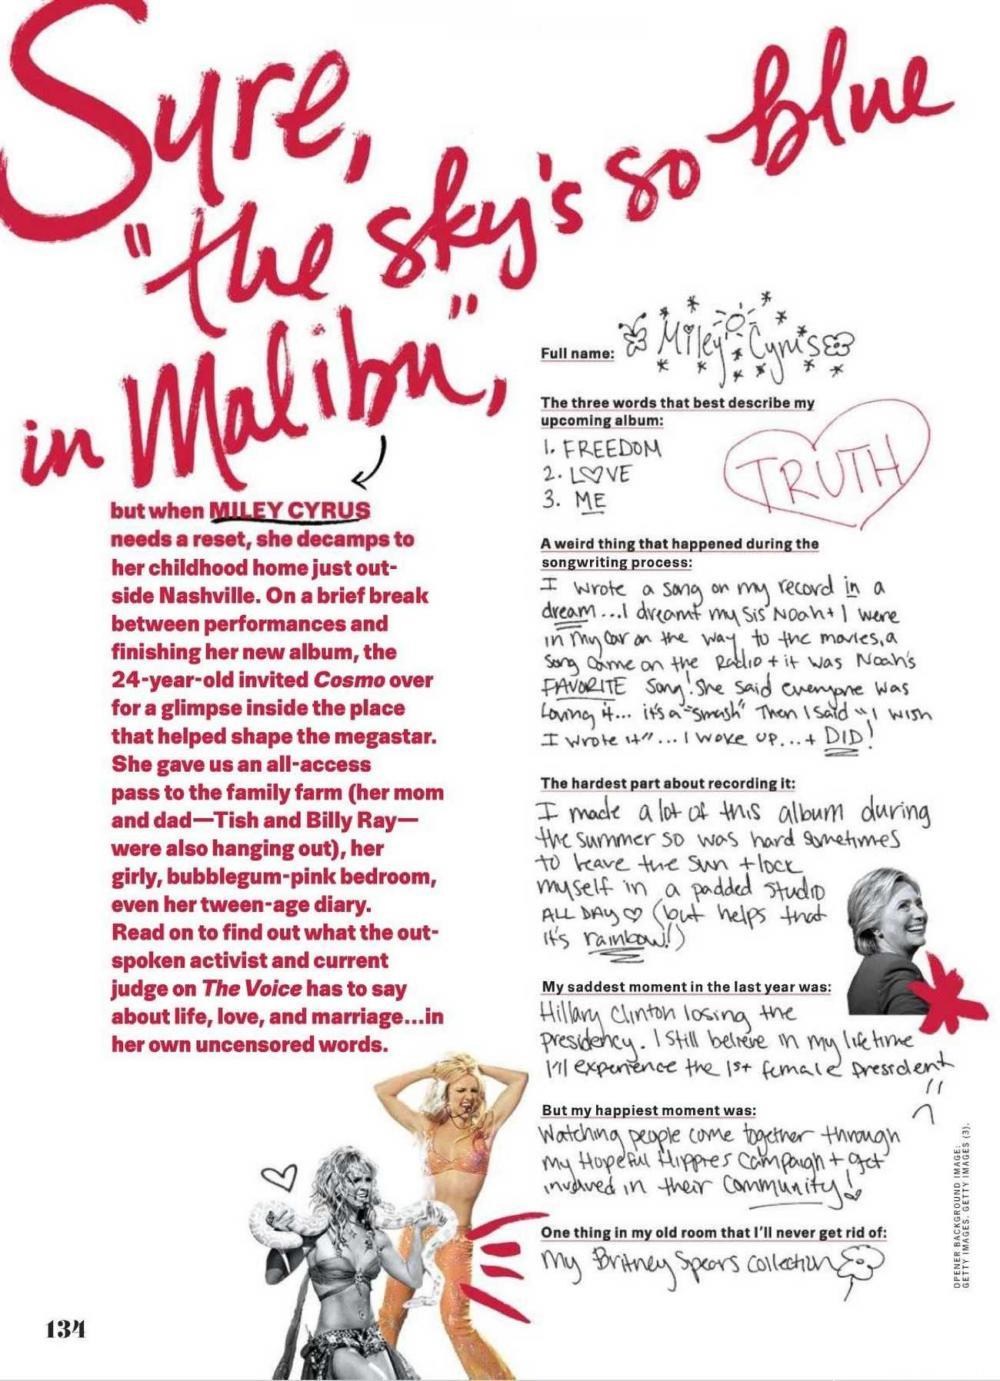 Sure,
"the sky's so blue
in Malibu,"
but when MILEY CYRUS
needs a reset, she decamps to
her childhood home just out-
side Nashville. On a brief break
between performances and
finishing her new album, the
24-year-old invited Cosmo over
for a glimpse inside the place
that helped shape the megastar.
She gave us an all-access
pass to the family farm (her mom
and dad—Tish and Billy Ray—
were also hanging out), her
girly, bubblegum-pink bedroom,
even her tween-age diary.
Read on to find out what the out-
spoken activist and current
judge on The Voice has to say
about life, love, and marriage...in
her own uncensored words.
Full name: Miley Cyrus
The three words that best describe my
upcoming album:
1. FREEDOM
2. L♡VE
3. ME
TRUTH
A weird thing that happened during the
songwriting process:
I wrote a song on my record in a
dream...I dreamt my sis Noah + I were
in my car on the way to the movies, a
song came on the Radio + it was Noah's
FAVORITE song! She said everyone was
Loving it... it's a "smash" Then I said "I wish
I wrote it"...I woke up...+ DID!
The hardest part about recording it:
I made a lot of this album during
the summer so was hard sometimes
to leave the sun + lock
myself in a padded studio
ALL DAY ♡ (but helps that
it's rainbow!)
My saddest moment in the last year was:
Hillary Clinton losing the
presidency. I still believe in my lifetime
I'll experience the 1st female president
But my happiest moment was:
Watching people come together through
my Hopeful Hippies campaign + get
involved in their community!
One thing in my old room that I'll never get rid of:
My Britney Spears collection
OPENER BACKGROUND IMAGE:
GETTY IMAGES. GETTY IMAGES (3).
134